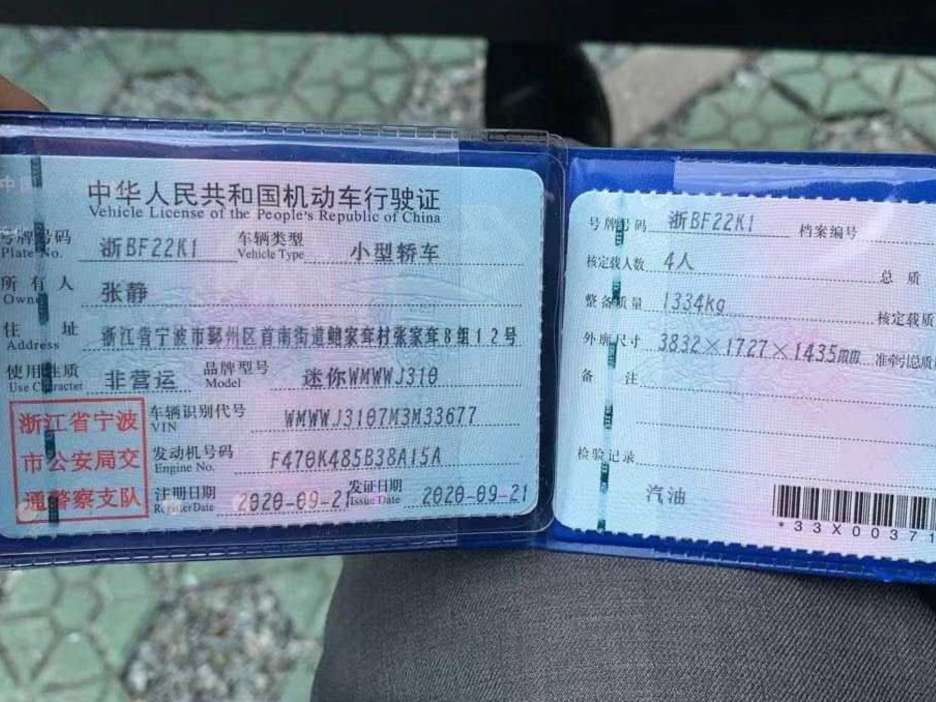 中华人民共和国机动车行驶证
Vehicle License of the People's Republic of China
号牌号码 浙BF22K1 车辆类型 小型轿车
Plate No. Vehicle Type
所有人 张静
Owner
住址 浙江省宁波市鄞州区首南街道鲍家耷村张家耷8组12号
Address
使用性质 非营运 品牌型号 迷你WMWWJ310
Use Character Model
浙江省宁波
市公安局交
通警察支队
车辆识别代号 WMWWJ3107M3M33677
VIN
发动机号码 F470K485B38A15A
Engine No.
注册日期 2020-09-21 发证日期 2020-09-21
Register Date Issue Date
号牌号码 浙BF22K1 档案编号
核定载人数 4人 总质
整备质量 1334kg 核定载质
外廓尺寸 3832×1727×1435mm 准牵引总质
备注
检验记录
汽油
*33X00371